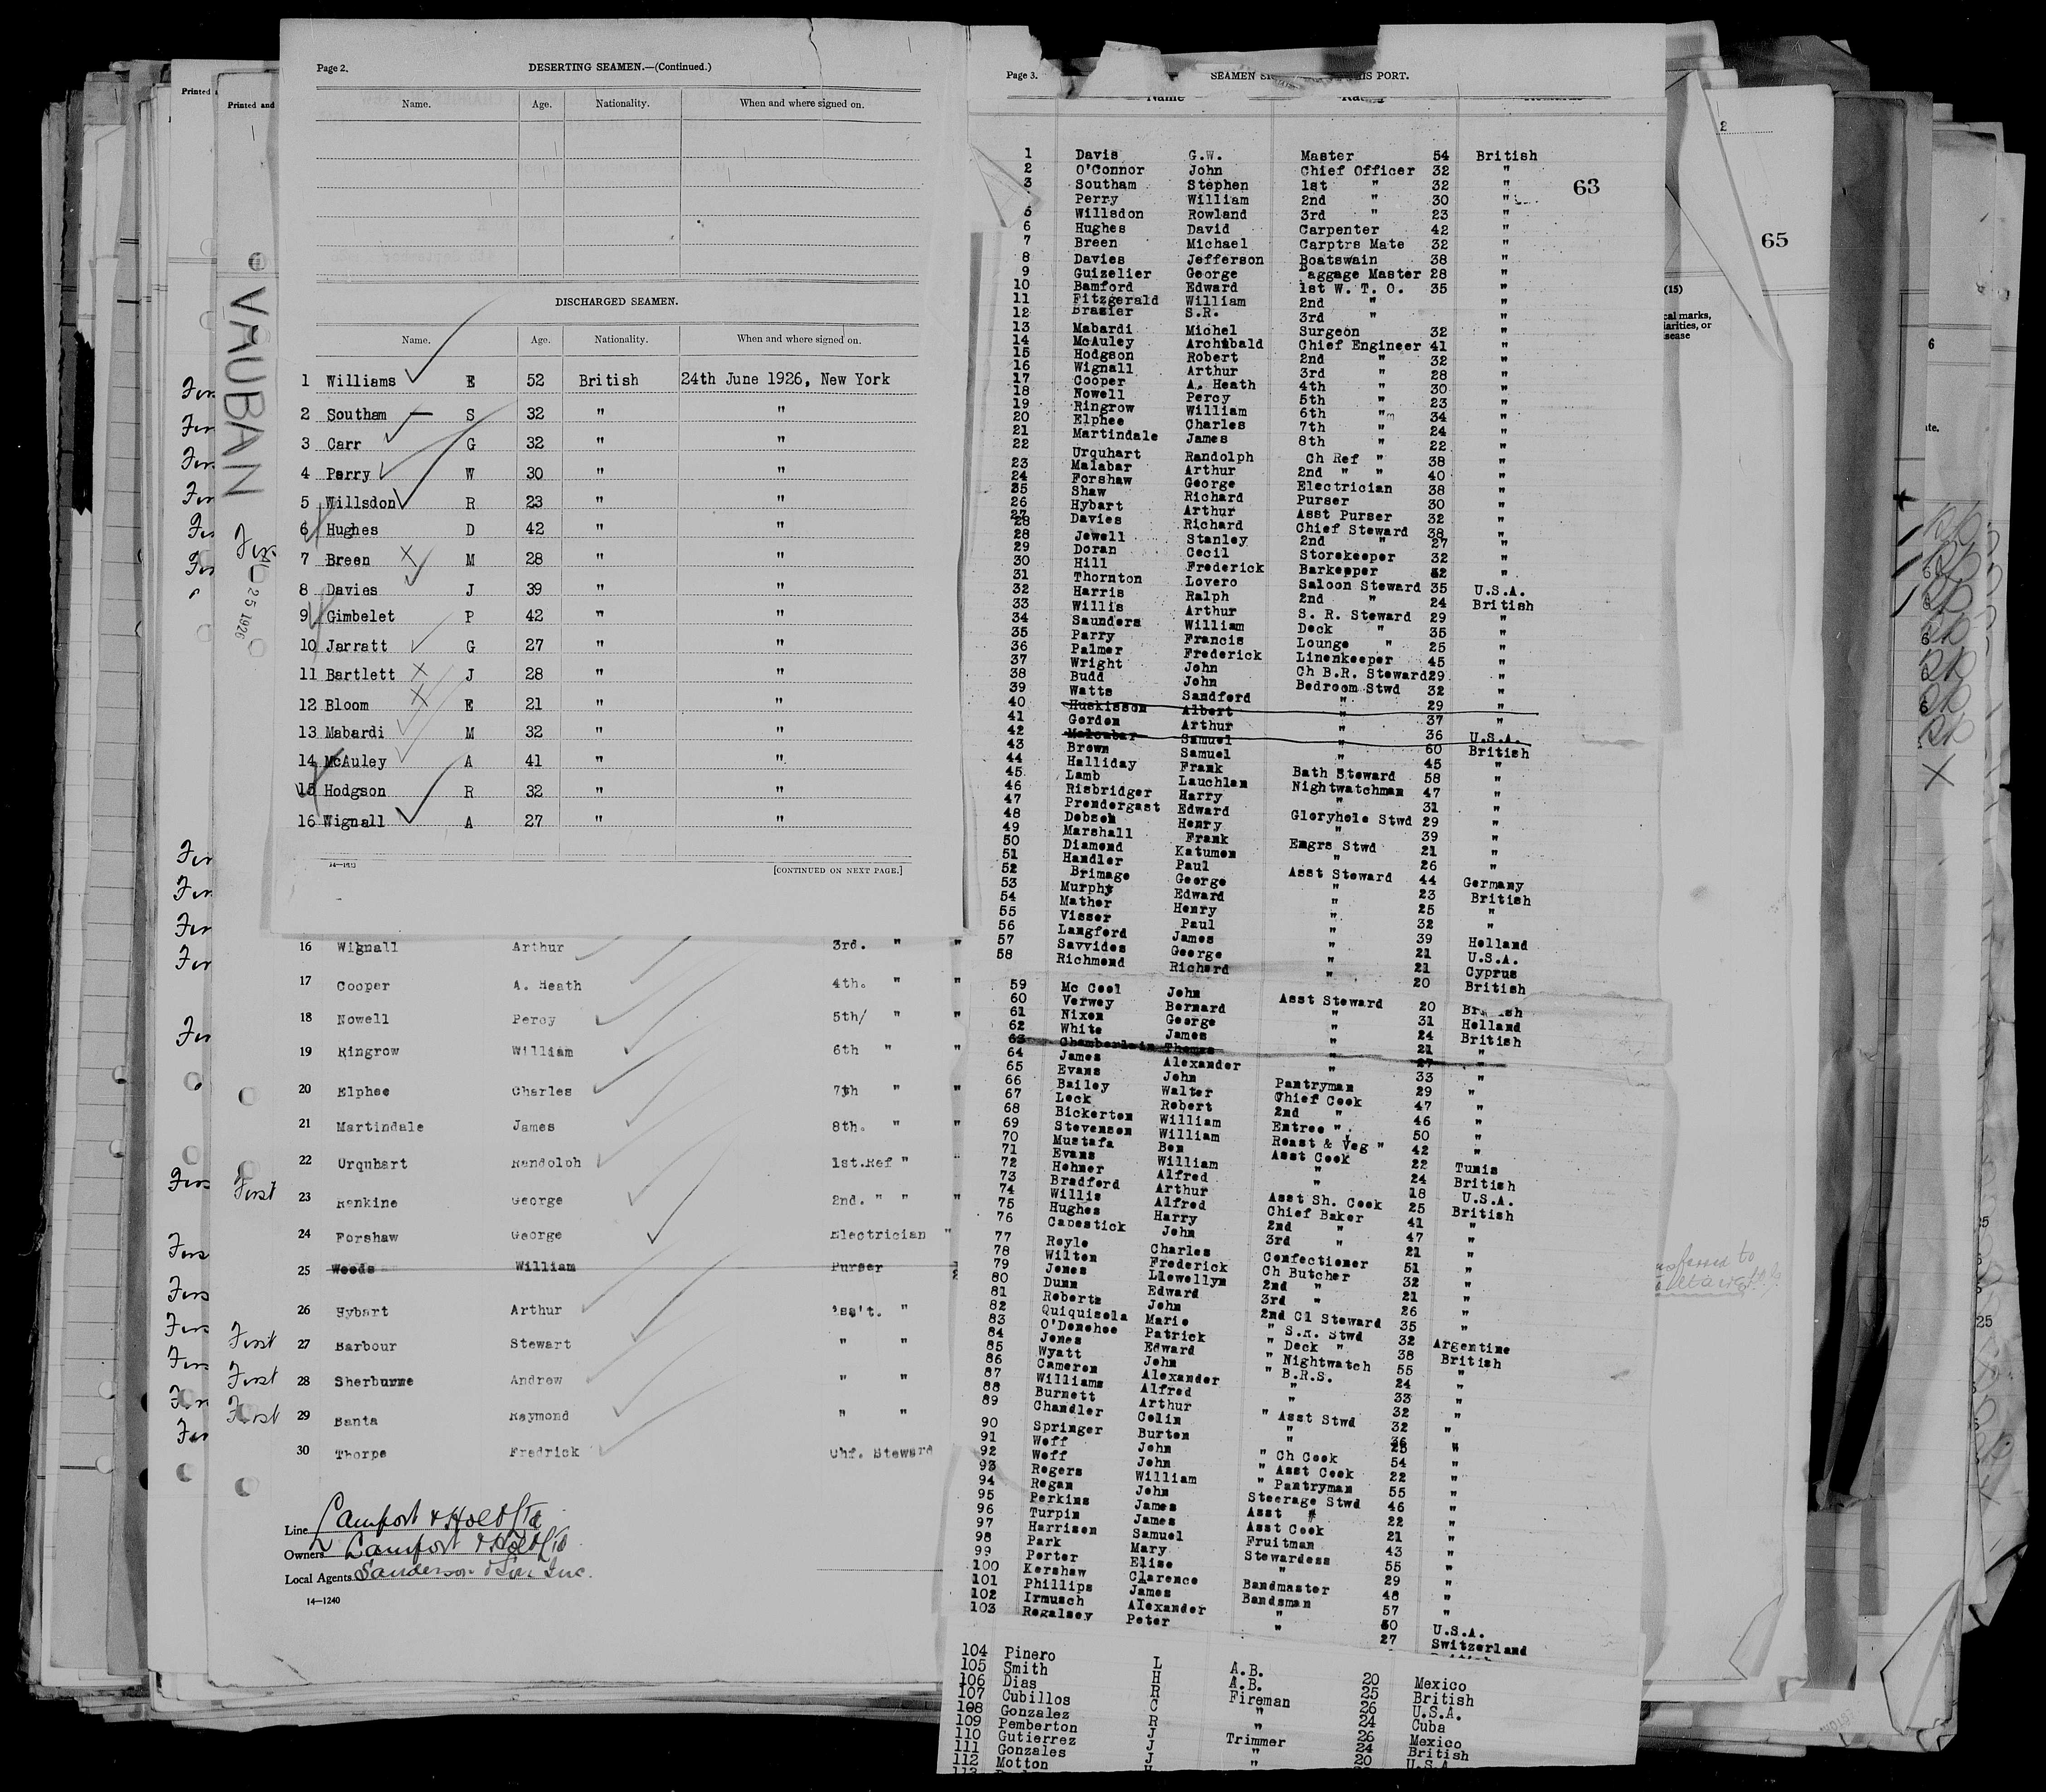 Page 2.
DESERTING SEAMEN.—(Continued.)
Name. Age. Nationality. When and where signed on.
DISCHARGED SEAMEN.
Name. Age. Nationality. When and where signed on.
1 Williams E 52 British 24th June 1926, New York
2 Southam S 32 " "
3 Carr G 32 " "
4 Perry W 30 " "
5 Willsdon R 23 " "
6 Hughes D 42 " "
7 Breen M 28 " "
8 Davies J 39 " "
9 Gimbelet P 42 " "
10 Jarratt G 27 " "
11 Bartlett J 28 " "
12 Bloom E 21 " "
13 Mabardi M 32 " "
14 McAuley A 41 " "
15 Hodgson R 32 " "
16 Wignall A 27 " "
[CONTINUED ON NEXT PAGE.]
16 Wignall Arthur 3rd. " "
17 Cooper A. Heath 4th. " "
18 Nowell Percy 5th/ " "
19 Ringrow William 6th " "
20 Elphee Charles 7th " "
21 Martindale James 8th. " "
22 Urquhart Randolph 1st.Ref "
23 Renkine George 2nd. " " "
24 Forshaw George Electrician "
25 Woods William Purser
26 Hybart Arthur Ass't. "
First 27 Barbour Stewart " "
First 28 Sherburne Andrew " "
First 29 Banta Raymond " "
30 Thorpe Fredrick Chf. Steward
Line Lamport & Holt Ltd
Owners Lamport & Holt Ltd
Local Agents Sanderson & Son Inc.
14—1240
Printed and
VAUBAN
25 1926
First
Page 3.
SEAMEN S IS PORT.
Name
63
1 Davis G.W. Master 54 British
2 O'Connor John Chief Officer 32 "
3 Southam Stephen 1st " 32 "
Perry William 2nd " 30 "
5 Willsdon Rowland 3rd " 23 "
6 Hughes David Carpenter 42 "
7 Breen Michael Carptrs Mate 32 "
8 Davies Jefferson Boatswain 38 "
9 Guizelier George Baggage Master 28 "
10 Bamford Edward 1st W. T. O. 35 "
11 Fitzgerald William 2nd " "
12 Brasier S.R. 3rd " "
13 Mabardi Michel Surgeon 32 "
14 McAuley Archibald Chief Engineer 41 "
15 Hodgson Robert 2nd " 32 "
16 Wignall Arthur 3rd " 28 "
17 Cooper A. Heath 4th " 30 "
18 Nowell Percy 5th " 23 "
19 Ringrow William 6th " 34 "
20 Elphee Charles 7th " 24 "
21 Martindale James 8th " 22 "
22 Urquhart Randolph Ch Ref " 38 "
23 Malabar Arthur 2nd " " 40 "
24 Forshaw George Electrician 38 "
25 Shaw Richard Purser 30 "
26 Hybart Arthur Asst Purser 32 "
27 Davies Richard Chief Steward 38 "
28 Jewell Stanley 2nd " 27 "
29 Doran Cecil Storekeeper 32 "
30 Hill Frederick Barkeeper 32 "
31 Thornton Lovero Saloon Steward 35 U.S.A.
32 Harris Ralph 2nd " 24 British
33 Willis Arthur S. R. Steward 29 "
34 Saunders William Deck " 35 "
35 Parry Francis Lounge " 25 "
36 Palmer Frederick Linenkeeper 45 "
37 Wright John Ch B.R. Steward 29 "
38 Budd John Bedroom Stwd 32 "
39 Watts Sandford " 29 "
40 Huskisson Albert " 37 "
41 Gordon Arthur " 36 U.S.A.
42 Samuel " 60 British
43 Brown Samuel " 45 "
44 Halliday Frank Bath Steward 58 "
45 Lamb Lauchlan Nightwatchman 47 "
46 Risbridger Harry " 31 "
47 Prendergast Edward Gloryhole Stwd 29 "
48 Dobson Henry " 39 "
49 Marshall Frank Engrs Stwd 21 "
50 Diamond Katumen " 26 "
51 Handler Paul Asst Steward 44 Germany
52 Brimage George " 23 British
53 Murphy Edward " 25 "
54 Mather Henry " 32 "
55 Visser Paul " 39 Holland
56 Langford James " 21 U.S.A.
57 Savvides George " 21 Cyprus
58 Richmond Richard " 20 British
59 Mc Cool John Asst Steward 20
60 Verwey Bernard " 31 Holland
61 Nixon George " 24 British
62 White James " 21 "
63 Chamberlain Thomas " 27 "
64 James Alexander " 33 "
65 Evans John Pantryman 29 "
66 Bailey Walter Chief Cook 47 "
67 Leck Robert 2nd " 46 "
68 Bickerton William Entree " 50 "
69 Stevenson William Roast & Veg " 42 "
70 Mustafa Ben Asst Cook 22 Tunis
71 Evans William " 24 British
72 Hohner Alfred " 18 U.S.A.
73 Bradford Arthur Asst Sh. Cook 25 British
74 Willis Alfred Chief Baker 41 "
75 Hughes Harry 2nd " 47 "
76 Capestick John 3rd " 21 "
77 Royle Charles Confectioner 51 "
78 Wilton Frederick Ch Butcher 32 "
79 Jones Llewellyn 2nd " 21 "
80 Dunn Edward 3rd " 26 "
81 Roberts John 2nd Cl Steward 35 "
82 Quiquisola Mario " S.R. Stwd 32 Argentine
83 O'Donohoe Patrick " Deck " 38 British
84 Jones Edward " Nightwatch 55 "
85 Wyatt John " B.R.S. 24 "
86 Cameron Alexander " 33 "
87 Williams Alfred " 32 "
88 Burnett Arthur " Asst Stwd 32 "
89 Chandler Colin "
90 Springer Burton " 25 "
91 Woff John " Ch Cook 54 "
92 Woff John " Asst Cook 22 "
93 Rogers William " Pantryman 55 "
94 Regan John Steerage Stwd 46 "
95 Perkins James Asst " 22 "
96 Turpin James Asst Cook 21 "
97 Harrison Samuel Fruitman 43 "
98 Park Mary Stewardess 55 "
99 Porter Elise " 29 "
100 Kershaw Clarence Bandmaster 48 "
101 Phillips James Bandsman 57 "
102 Irmusch Alexander " 30 U.S.A.
103 Regalsey Peter " 27 Switzerland
104 Pinero L A.B. 20 Mexico
105 Smith H A.B. 25 British
106 Dias R Fireman 26 U.S.A.
107 Cubillos C " 24 Cuba
108 Gonzalez R " 26 Mexico
109 Pemberton J Trimmer 24 British
110 Gutierrez J " 20 U.S.A
111 Gonzales J "
112 Motton
113
2
65
(15)